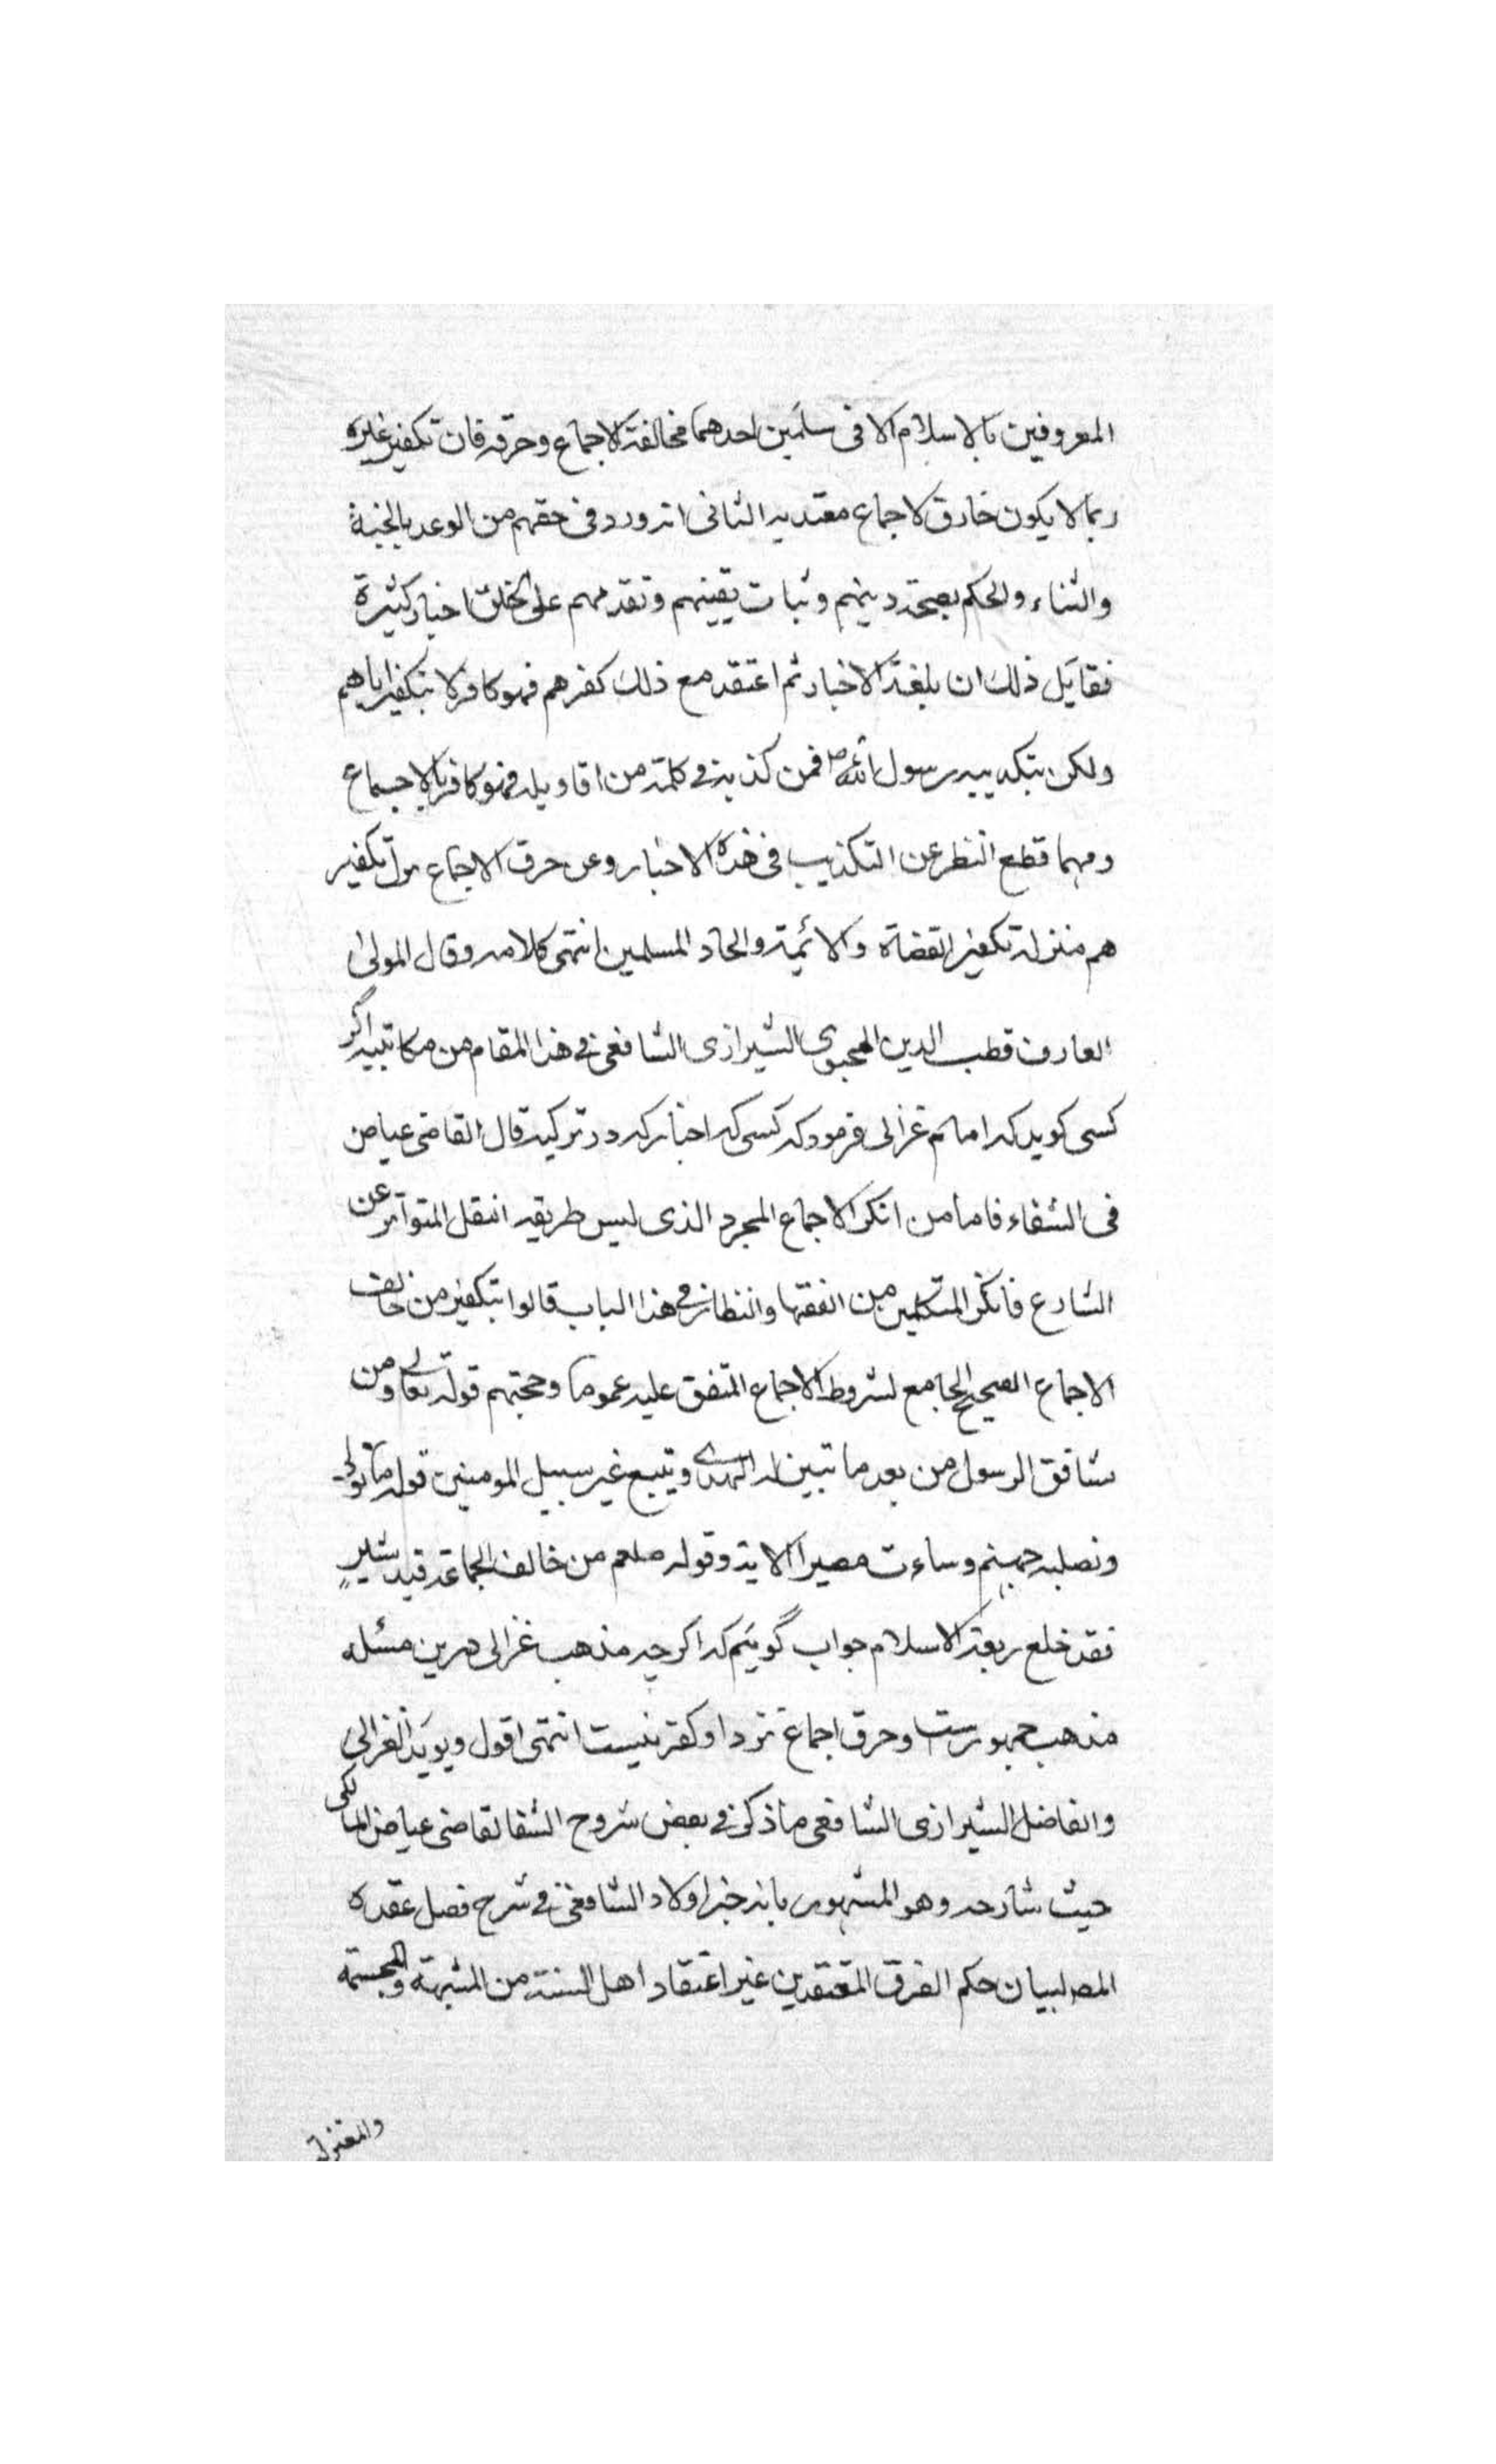 المعروفين بالاسلام الا فى سلمين احدهما مخالفة الاجماع وحرقه فان تكفير غيره
ربما لا يكون خارق لاجماع معتد به الثانى انه ورد فى حقهم من الوعد بالجنة
والثناء والحكم بصحة دينهم وثبات يقينهم وتقدمهم على الخلق اخبار كثيرة
فقايل ذلك ان بلغته الاخبار ثم اعتقد مع ذلك كفرهم فهو كافر لا بتكفير اياهم
ولكن بتكذيبه رسول الله ص فمن كذبه فى كلمة من اقاويله فهو كافر بالاجماع
ومهما قطع النظر عن التكذيب فى هذه الاخبار وعن حرق الاجماع نزل تكفير
هم منزلة تكفير القضاة والائمية والحاد المسلمين انتهى كلامه وقال المولى
العارف قطب الدين المحبوى الشيرازى الشافعى فى هذا المقام من مكاتيبه اكر
كسى كويد كه امام غزالى فرمود كه كسى كه اخبار كه در تركيه قال القاضى عياض
فى الشفاء فاما من انكر الاجماع المجرد الذى ليس طريقه النقل المتواتر عن
الشارع فانكر المتكلمين من الفقها والنظار فى هذا الباب قالوا بتكفير من خالف
الاجماع الصحيح الجامع لشروط الاجماع المتفق عليه عموما وحجتهم قوله تعالى ومن
يشاقق الرسول من بعد ما تبين له الهدى ويتبع غير سبيل المومنين قوله ما تولى
ونصليه جهنم وساءت مصيرا الاية وقوله صلعم من خالف الجماعة قيد شبر
فقد خلع ربقة الاسلام جواب گوئيم كه اكر چه مذهب غزالى درين مسئله
مذهب جمهورست وحرق اجماع نزد او كفر نيست انتهى اقول ويويد الغزالى
والفاضل الشيرازى الشافعى ما ذكر فى بعض شروح الشفا لقاضى عياض المالكى
حيث شارحه وهو المشهور بانه خير اولاد الشافعى فى شرح فصل عقده
المص لبيان حكم الفرق المعتقدين غير اعتقاد اهل السنة من المشبهة والمجسمة
والمعتزلة